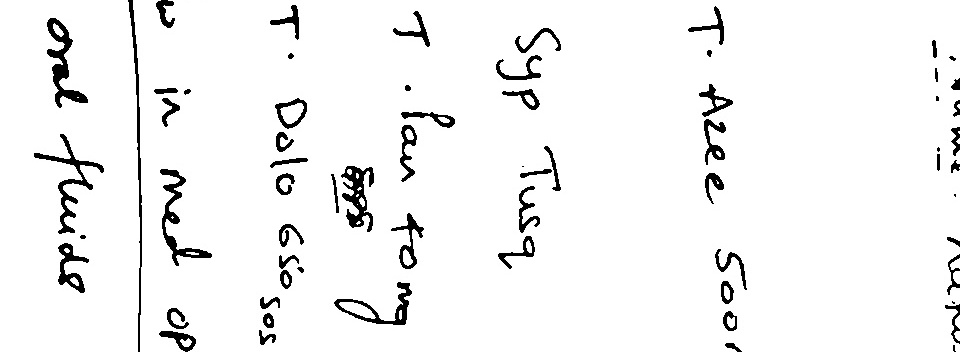 T. Azee 500
Syp Tusq
T. Pan 40 mg
T. Dolo 650 SOS
in med op
oral fluids